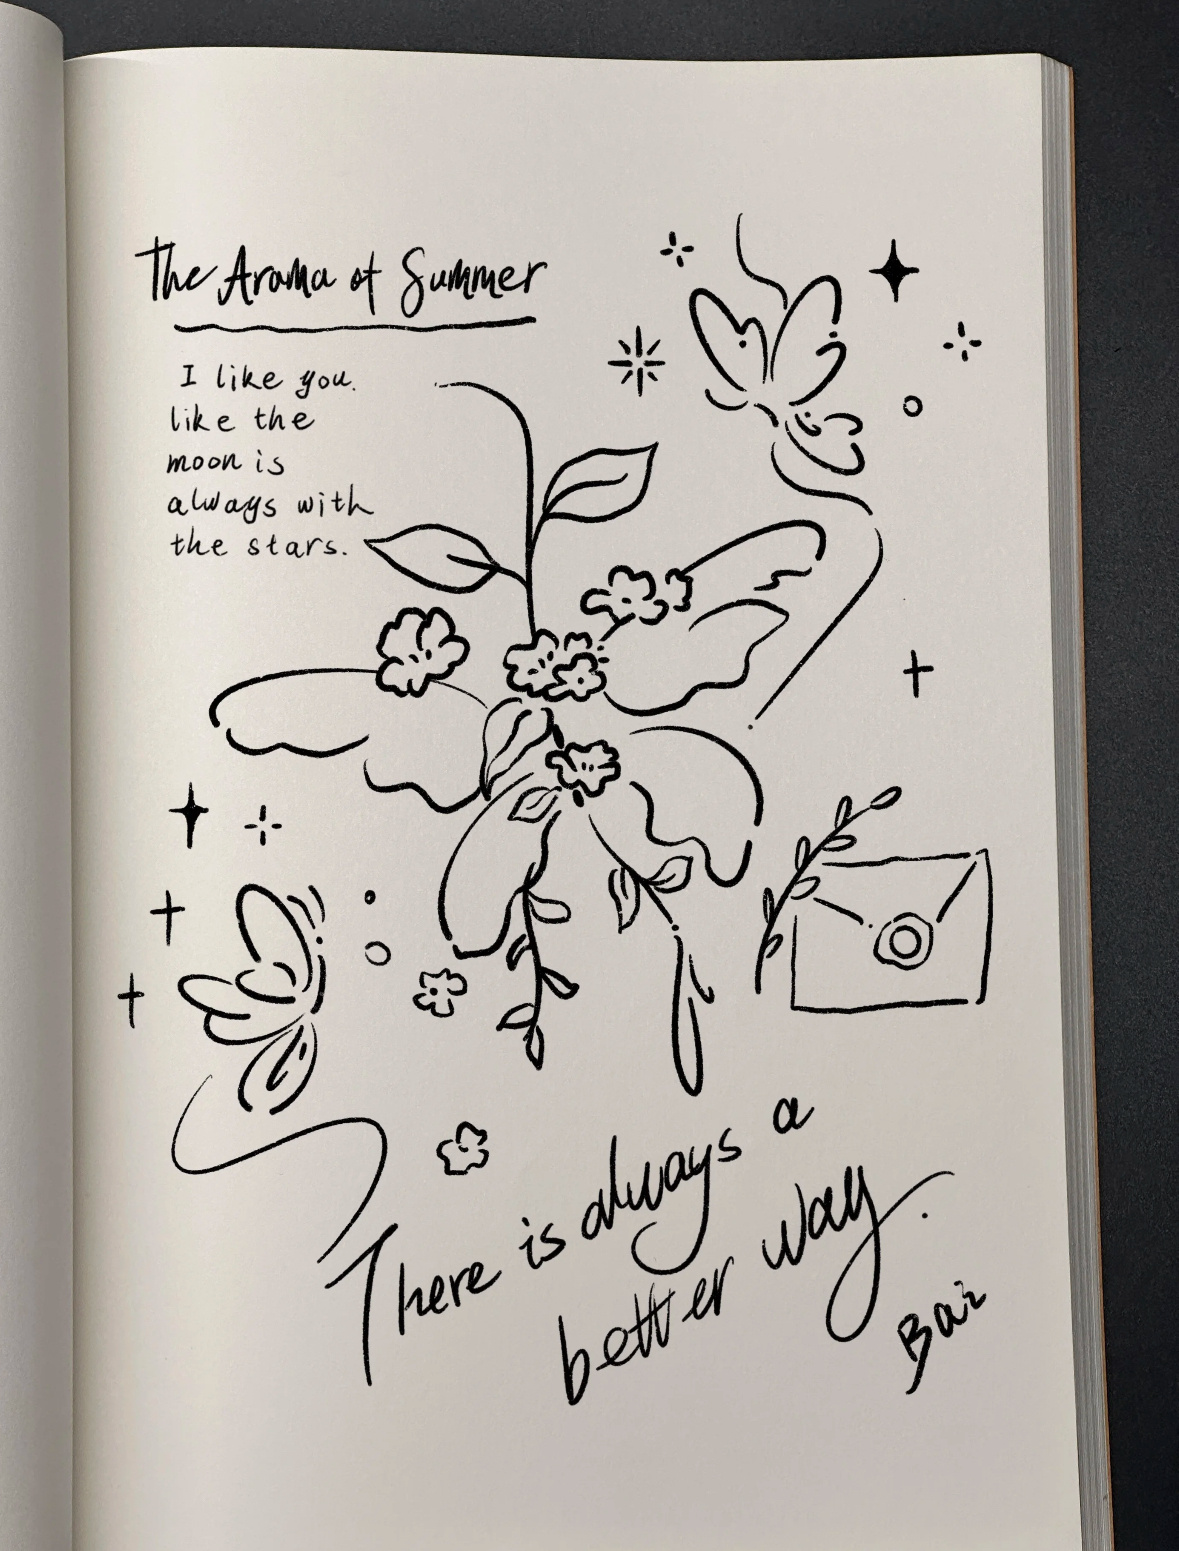 The Aroma of Summer
I like you.
like the
moon is
always with
the stars.
There is always a
better way.
Bai